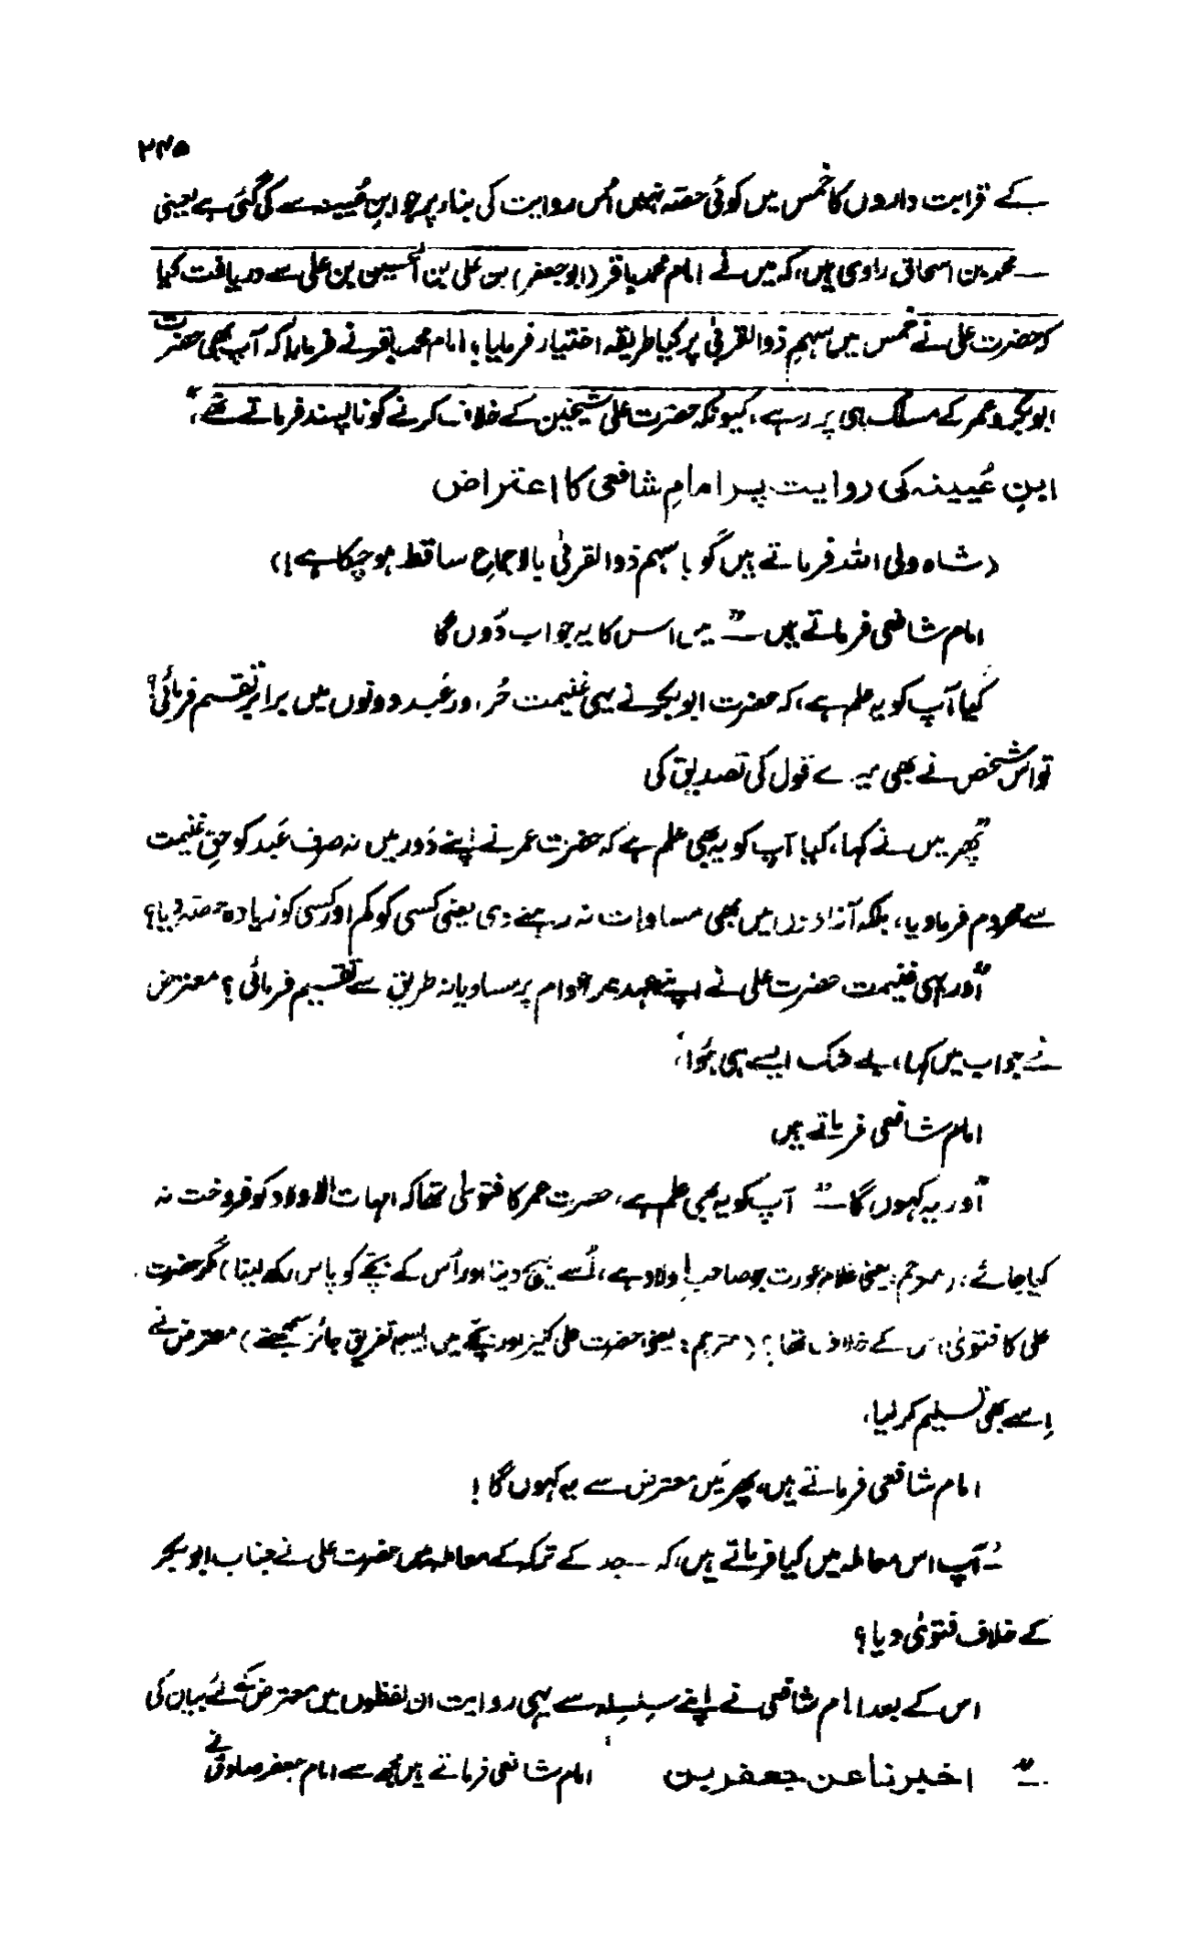 ۲۴۵
کے قرابت داروں کا خمس میں کوئی حصہ نہیں اُس روایت کی بناء پر جو ابنِ عُیینہ سے کی گئی ہے یعنی
— محمد بن اسحاق راوی ہیں، کہ میں نے امام محمد باقر (ابوجعفر) بن علی بن الحسین بن علی سے دریافت کیا
کہ حضرت علی نے خمس میں سہمِ ذوالقربیٰ پر کیا طریقہ اختیار فرمایا؟ امام محمد باقر نے فرمایا کہ آپ بھی حضرت
ابوبکر و عمر کے مسلک ہی پر رہے، کیونکہ حضرت علی شیخین کے خلاف کرنے کو ناپسند فرماتے تھے،“
ابنِ عُیینہ کی روایت پر امامِ شافعی کا اعتراض
(شاہ ولی اللہ فرماتے ہیں گو یا سہم ذوالقربیٰ بالاجماع ساقط ہو چکا ہے!)
امام شافعی فرماتے ہیں — ” میں اس کا یہ جواب دُوں گا
کیا آپ کو یہ علم ہے، کہ حضرت ابوبکر نے یہی غنیمت حُر اور عَبد دونوں میں برابر تقسیم فرمائی؟
تو اس شخص نے بھی میرے قول کی تصدیق کی
”پھر میں نے کہا، کیا آپ کو یہ بھی علم ہے کہ حضرت عمر نے اپنے دَور میں نہ صرف عَبد کو حقِ غنیمت
سے محروم فرما دیا، بلکہ آزادوں میں بھی مساوات نہ رہنے دی یعنی کسی کو کم اور کسی کو زیادہ حصہ دیا؟
”اور یہی غنیمت حضرت علی نے اپنے عہد میں عوام پر مساویانہ طریق سے تقسیم فرمائی؟ معترض
نے جواب میں کہا، بے شک ایسے ہی ہُوا،
امام شافعی فرماتے ہیں
”اور یہ کہوں گا — ” آپ کو یہ بھی علم ہے، حضرت عمر کا فتویٰ تھا کہ امہات الاولاد کو فروخت نہ
کیا جائے، (مترجم: یعنی غلام عورت جو صاحبِ اولاد ہے، اُسے بیچ دینا اور اُس کے بچے کو پاس رکھ لینا) مگر حضرت
علی کا فتویٰ اس کے خلاف تھا؟ (مترجم: یعنی حضرت علی کنیز اور بچے میں تفریق جائز سمجھتے) معترض نے
اِسے بھی تسلیم کر لیا،
امام شافعی فرماتے ہیں، پھر میں معترض سے یہ کہوں گا!
” آپ اس معاملہ میں کیا فرماتے ہیں، کہ — جد کے ترکہ کے معاملہ میں حضرت علی نے جناب ابوبکر
کے خلاف فتویٰ دیا؟
اس کے بعد امام شافعی نے اپنے سِلسِلہ سے یہی روایت ان لفظوں میں معترض کے لئے بیان کی
” اخبرنا عن جعفر بن امام شافعی فرماتے ہیں مجھ سے امام جعفر صادق نے